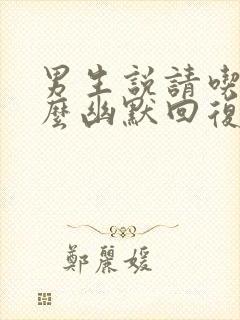 男生説請喫
麼幽默回復
鄭麗媛